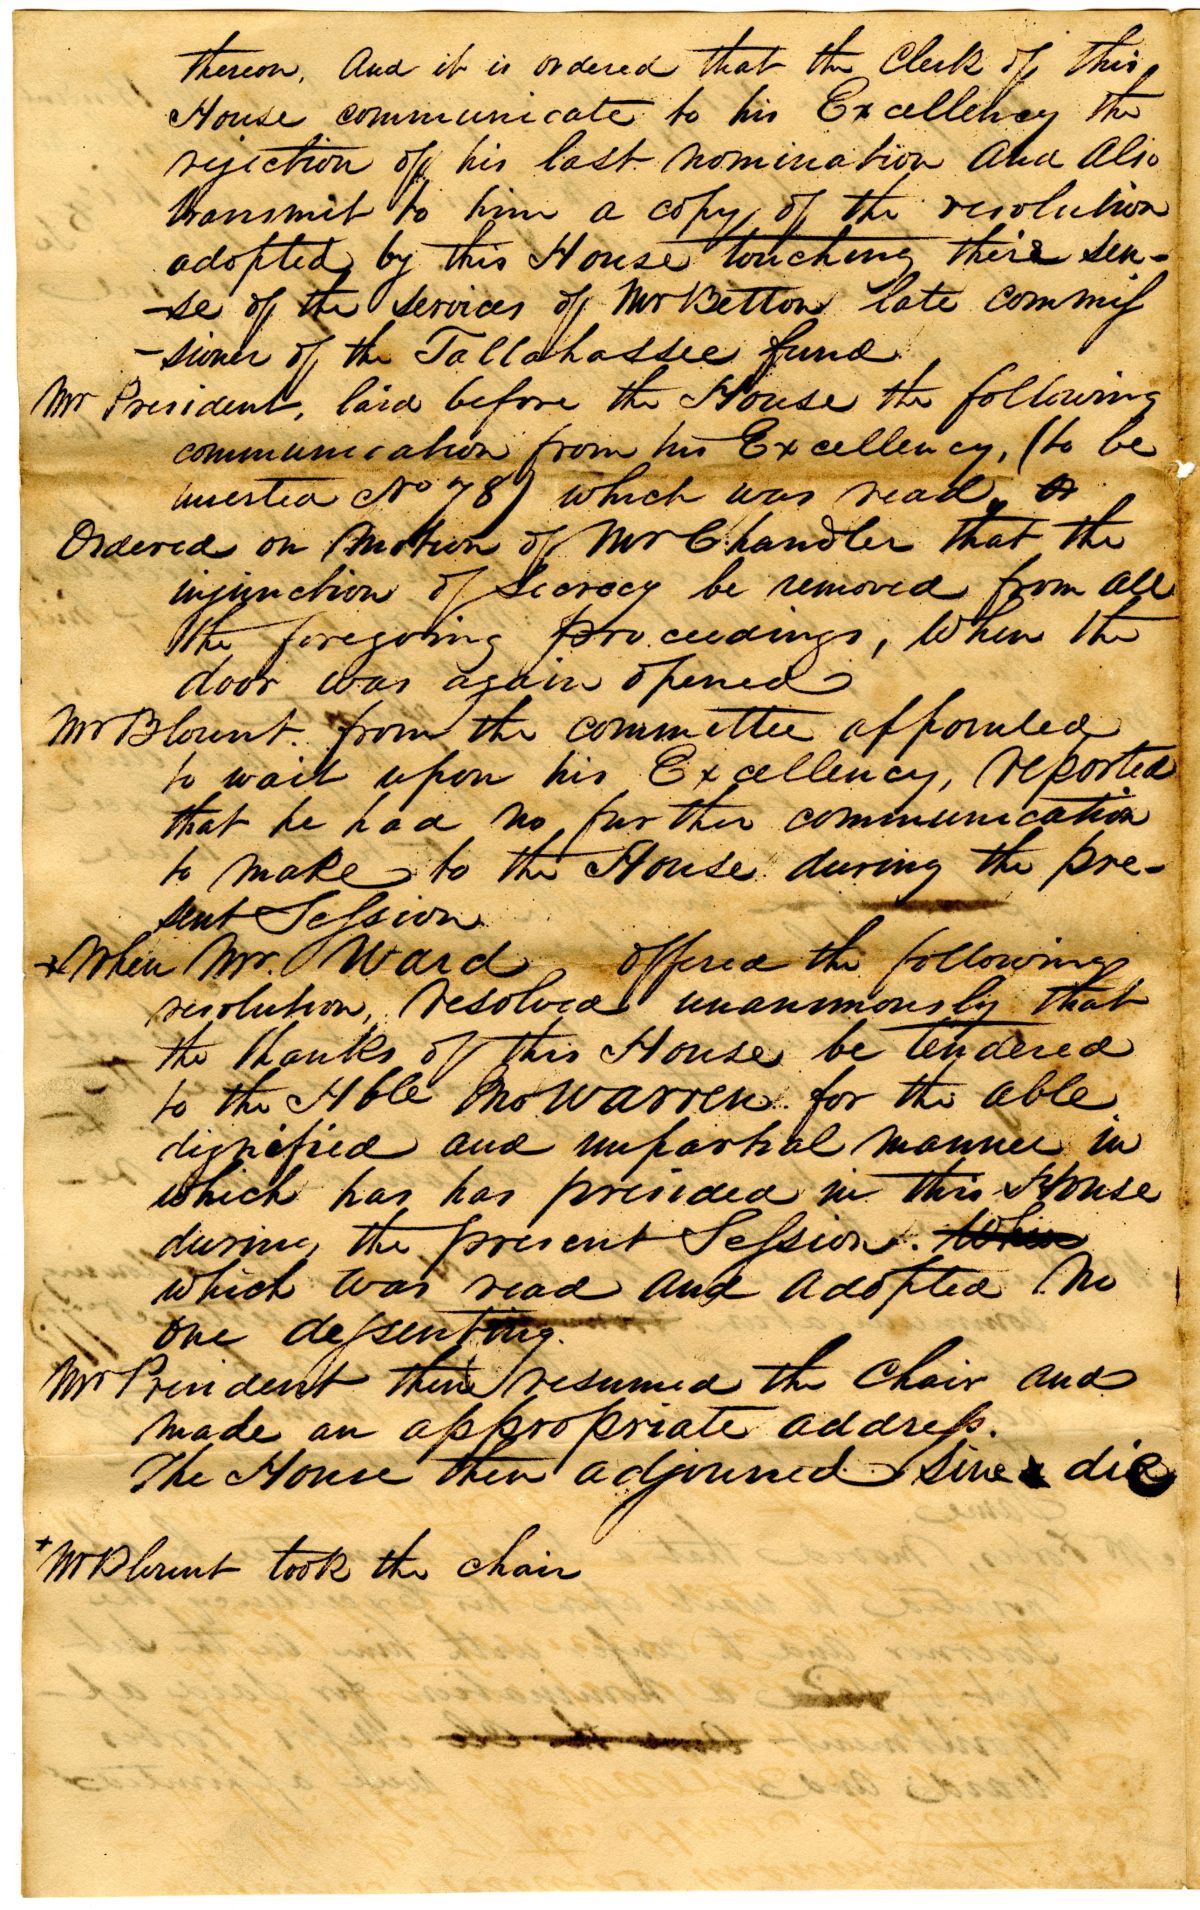 thereon, And it is ordered that the Clerk of this
House communicate to his Excellency the
rejection of his last nomination and also
transmit to him a copy of the resolution
adopted by this House touching there sen-
-se of the services of Mr Betton late commis
-sioner of the Tallahassee fund
Mr President, laid before the House the following
communication from his Excellency, (to be
inserted No 78) which was read,
Ordered on motion of Mr Chandler that the
injunction of Secrecy be removed from all
the foregoing proceedings, When the
door was again opened
Mr Blount from the committee appointed
to wait upon his Excellency, reported
that he had no further communication
to make to the House during the pre-
sent Session
+ When Mr. Ward offered the following
resolution, resolved unanimously that
the thanks of this House be tendered
to the Hble Mr Warren for the able
dignified and impartial manner in
which has has presided in this House
during the present Session. When
which was read and adopted No
one dessenting.
Mr President then resumed the Chair and
made an appropriate address.
The House then adjourned sine die
+ Mr Blount took the chair